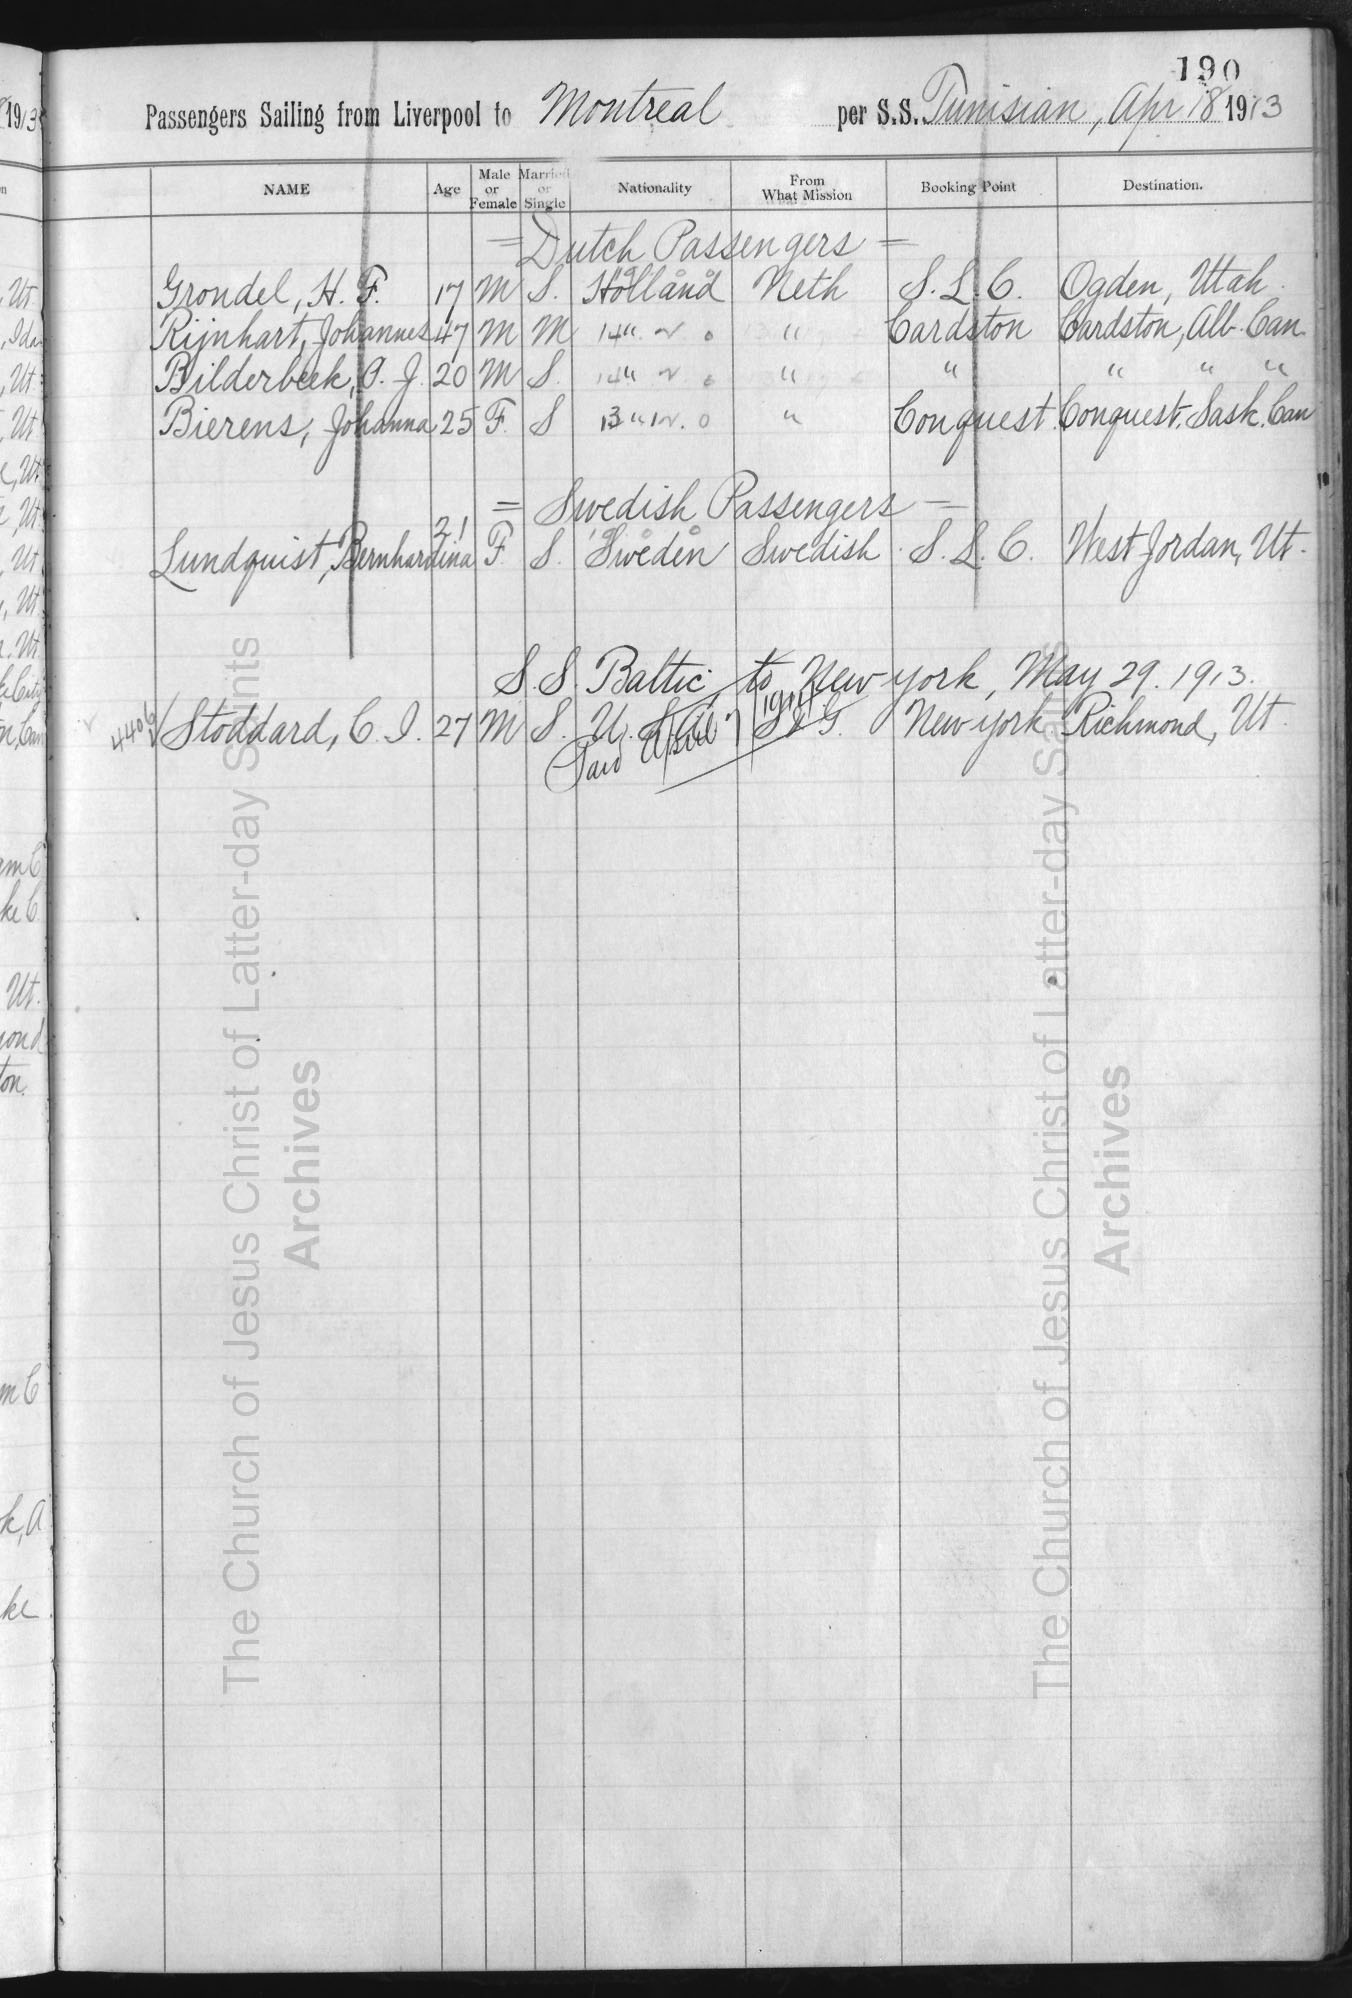 190
Passengers Sailing from Liverpool to Montreal per S.S. Tunisian, Apr 18 1913
NAME Age Male or Female Married or Single Nationality From What Mission Booking Point Destination.
= Dutch Passengers =
Grondel, H. F. 17 M S. Holland Neth S. L. C. Ogden, Utah.
Rijnhart, Johannes 47 M M " " Cardston Cardston, Alb. Can.
Bilderbeek, O. J. 20 M S. " " " " " "
Bierens, Johanna 25 F. S " " Conquest Conquest, Sask. Can
= Swedish Passengers =
Lundquist, Bernhardina 21 F S. Sweden Swedish S. L. C. West Jordan, Ut.
S.S. Baltic to New york, May 29. 1913.
4406 Stoddard, C. I. 27 M S. U. S. A. S & G. New york Richmond, Ut.
Paid April 7 1914
The Church of Jesus Christ of Latter-day Saints
Archives
The Church of Jesus Christ of Latter-day Saints
Archives